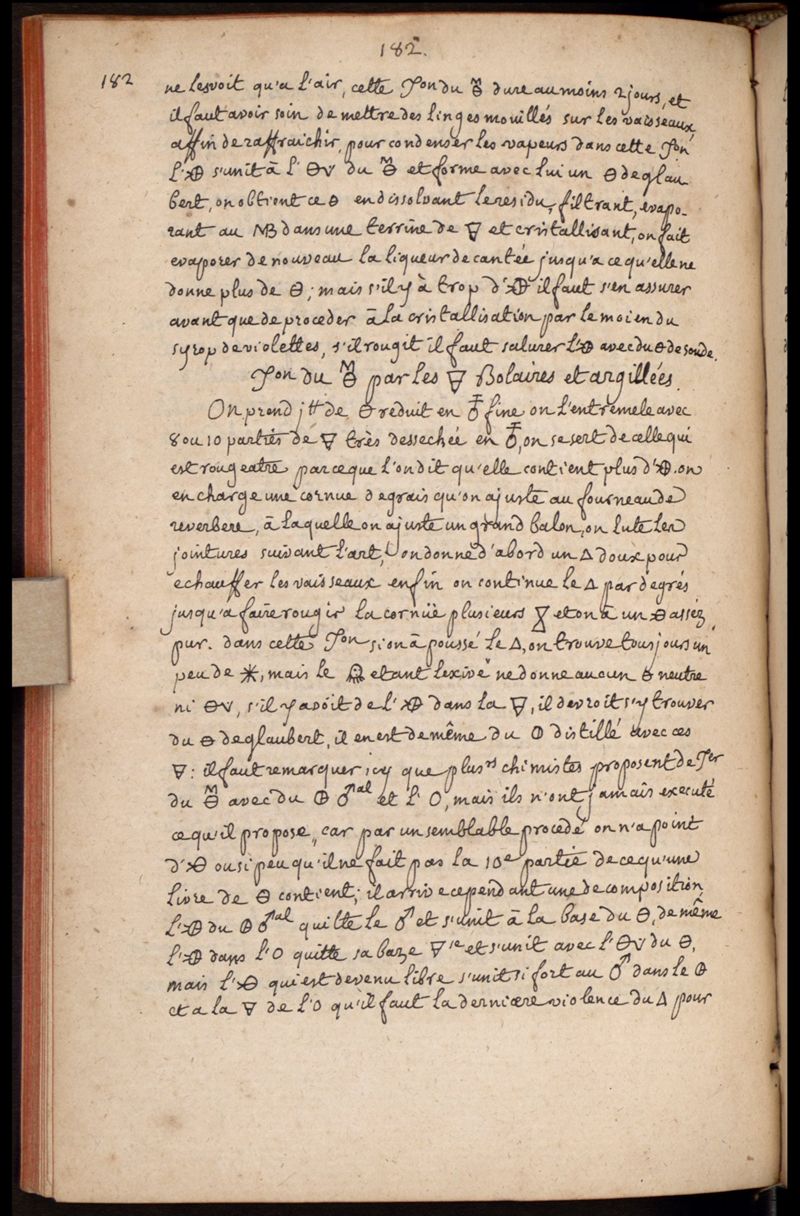 182.
182
ne lesvoit qu'a l'air, cette 🝠on du dure au moins 2 jours, et
il faut avoir soin de mettre des linges mouillés sur les vaisseaux
affin de raffraichir, pour condenser les vapeurs dans cette
l'🜖 s'unit à l' 🜔v du et forme avec lui un 🜔 de glau
bert, on obtient ce 🜔 en dissolvant le residu, filtrant, evapo-
rant au MB dans une terrine de 🜃 et cristallisant, on fait
evaporer de nouveau la liqueur decantée jusqu'a ce qu'elle ne
donne plus de 🜔; mais s'il y à trop d' il faut s'en assurer
avant que de proceder à la cristallisation par le moien du
syrop de violettes, s'il rougit il faut saturer l' avec du 🜔 de soude.
on du par les 🜃 Bolaires et argillées.
On prend j ℔ de 🜔 reduit en fine on l'entremele avec
8 ou 10 parties de 🜃 très dessechée en , on se sert de celle qui
est rougeatre parceque l'on dit qu'elle contient plus d' . on
en charge une cornue de grais qu'on ajuste au fourneau de
reverbere, à laquelle on ajuste un grand balon, on lute les
jointures suivant l'art, on donne d'abord un △ doux pour
echauffer les vaisseaux enfin on continue le △ par degrés
jusqu'a faire rougir la cornüe plusieurs et on à un assez
pur. dans cette on si on à poussé le △, on trouve tousjours un
peu de ✱, mais le etant lexivé ne donne aucun 🜔 neutre
ni 🜔v, s'il y avoit de l' dans la 🜃, il devroit s'y trouver
du 🜔 de glaubert, il en est de même du 🜕 distillé avec ces
🜃: il faut remarquer icy que plusrs chimistes proposent de er
du avec du 🜨 ♂al et l' O, mais ils n'ont jamais executé
ce qu'il propose, car par un semblable procedé on n'a point
d' ou si peu qu'il ne fait pas la 10e partie de ce qu'une
livre de 🜔 contient; il arrive cependant une decomposition,
l' du 🜨 ♂al quitte le ♂ et s'unit à la base du 🜔, de même
l' dans l'O quitte sa baze 🜃re et s'unit avec l'🜔v du 🜔,
mais l' qui est devenu libre s'unit si fort au ♂ dans le 🜨
et a la 🜃 de l'O qu'il faut la derniere violence du △ pour